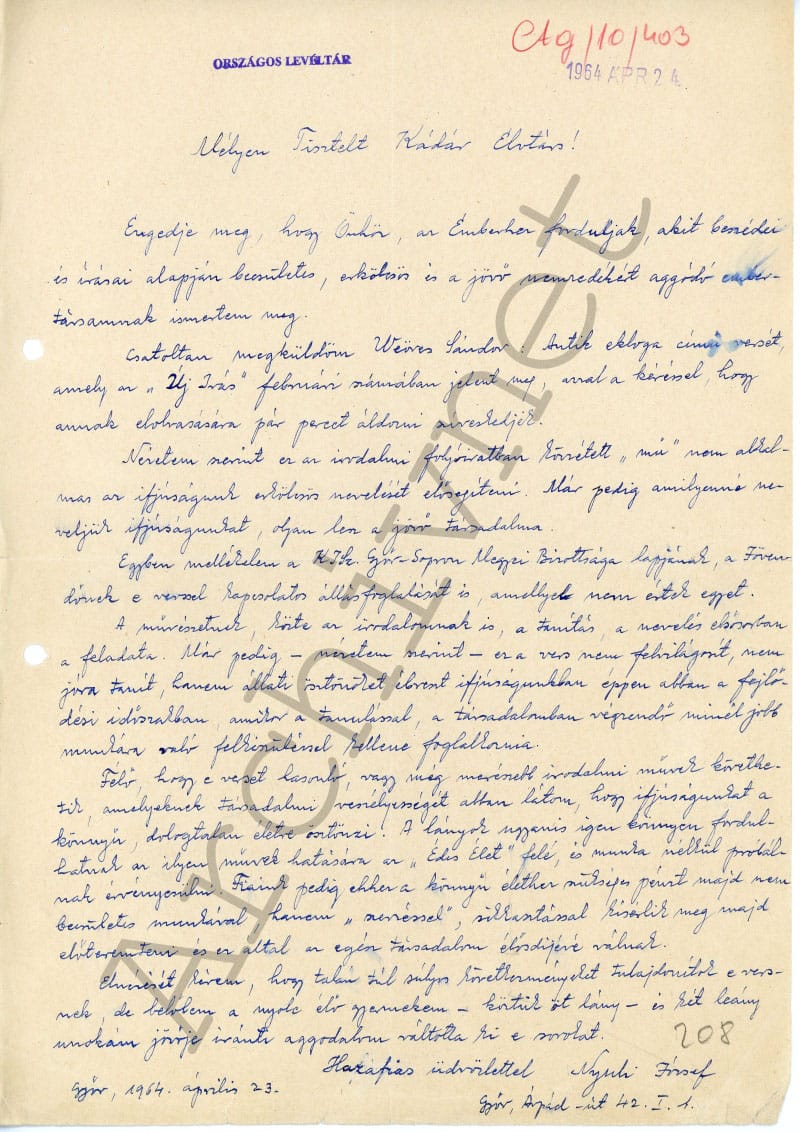 ORSZÁGOS LEVÉLTÁR
CAg/10/403
1964 ÁPR 24.
Mélyen Tisztelt Kádár Elvtárs!
Engedje meg, hogy Önhöz, az Emberhez forduljak, akit beszédei
és írásai alapján becsületes, erkölcsös és a jövő nemzedékért aggódó ember-
társamnak ismertem meg.
Csatoltan megküldöm Weöres Sándor: Antik ekloga című versét,
amely az „Új Írás" februári számában jelent meg, azzal a kéréssel, hogy
annak elolvasására pár percet áldozni szíveskedjék.
Nézetem szerint ez az irodalmi folyóiratban közzétett „mű" nem alkal-
mas az ifjúságunk erkölcsös nevelését elősegíteni. Már pedig amilyenné ne-
veljük ifjúságunkat, olyan lesz a jövő társadalma.
Egyben mellékelem a KISz. Győr-Sopron Megyei Bizottsága lapjának, a Jöven-
dőnek e verssel kapcsolatos állásfoglalását is, amellyel nem értek egyet.
A művészetnek, közte az irodalomnak is, a tanítás, a nevelés elsősorban
a feladata. Már pedig – nézetem szerint – ez a vers nem felvilágosít, nem
jóra tanít, hanem állati ösztönöket ébreszt ifjúságunkban éppen abban a fejlő-
dési időszakban, amikor a tanulással, a társadalomban végzendő minél jobb
munkára való felkészüléssel kellene foglalkoznia.
Félő, hogy e verset hasonló, vagy még merészebb irodalmi művek követhe-
tik, amelyeknek társadalmi veszélyességét abban látom, hogy ifjúságunkat a
könnyű, dologtalan életre ösztönzi. A lányok ugyanis igen könnyen fordul-
hatnak az ilyen művek hatására az „Édes Élet" felé, és munka nélkül próbál-
nak érvényesülni. Fiaink pedig ehhez a könnyű élethez szükséges pénzt majd nem
becsületes munkával, hanem „szerzéssel", sikkasztással kísérlik meg majd
előteremteni és ez által az egész társadalom élősdijévé válnak.
Elnézését kérem, hogy talán túl súlyos következményeket tulajdonítok e vers-
nek, de belőlem a nyolc élő gyermekem – köztük öt lány – és két leány
unokám jövője iránti aggodalom váltotta ki e sorokat.
208
Hazafias üdvözlettel Nyuli József
Győr, 1964. április 23.
Győr, Árpád-út 42. I. 1.
Archivnet